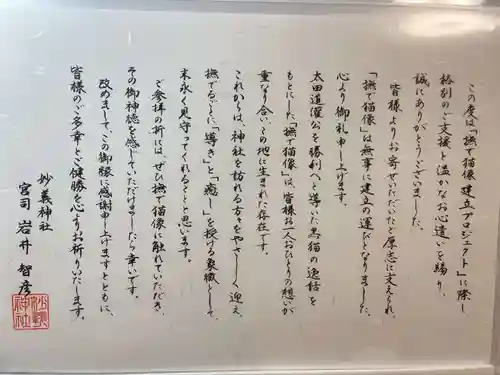 この度は「撫で猫像 建立プロジェクト」に際し
格別のご支援と温かなお心遣いを賜り、
誠にありがとうございました。
皆様よりお寄せいただいたご厚志に支えられ、
「撫で猫像」は無事に建立の運びとなりました。
心より御礼申し上げます。
太田道灌公を勝利へと導いた黒猫の逸話を
もとにした「撫で猫像」は、皆様お一人おひとりの想いが
重なり合い、この地に生まれた存在です。
これからは、神社を訪れる方々をやさしく迎え、
撫でるごとに「導き」と「癒し」を授ける象徴として、
末永く見守ってくれることと思います。
ご参拝の折には、ぜひ撫で猫像に触れていただき、
その御神徳を感じていただけましたら幸いです。
改めまして、この御縁に感謝申し上げますとともに、
皆様のご多幸とご健勝を心よりお祈りいたします。
妙義神社
宮司 岩井 智彦
妙義神社